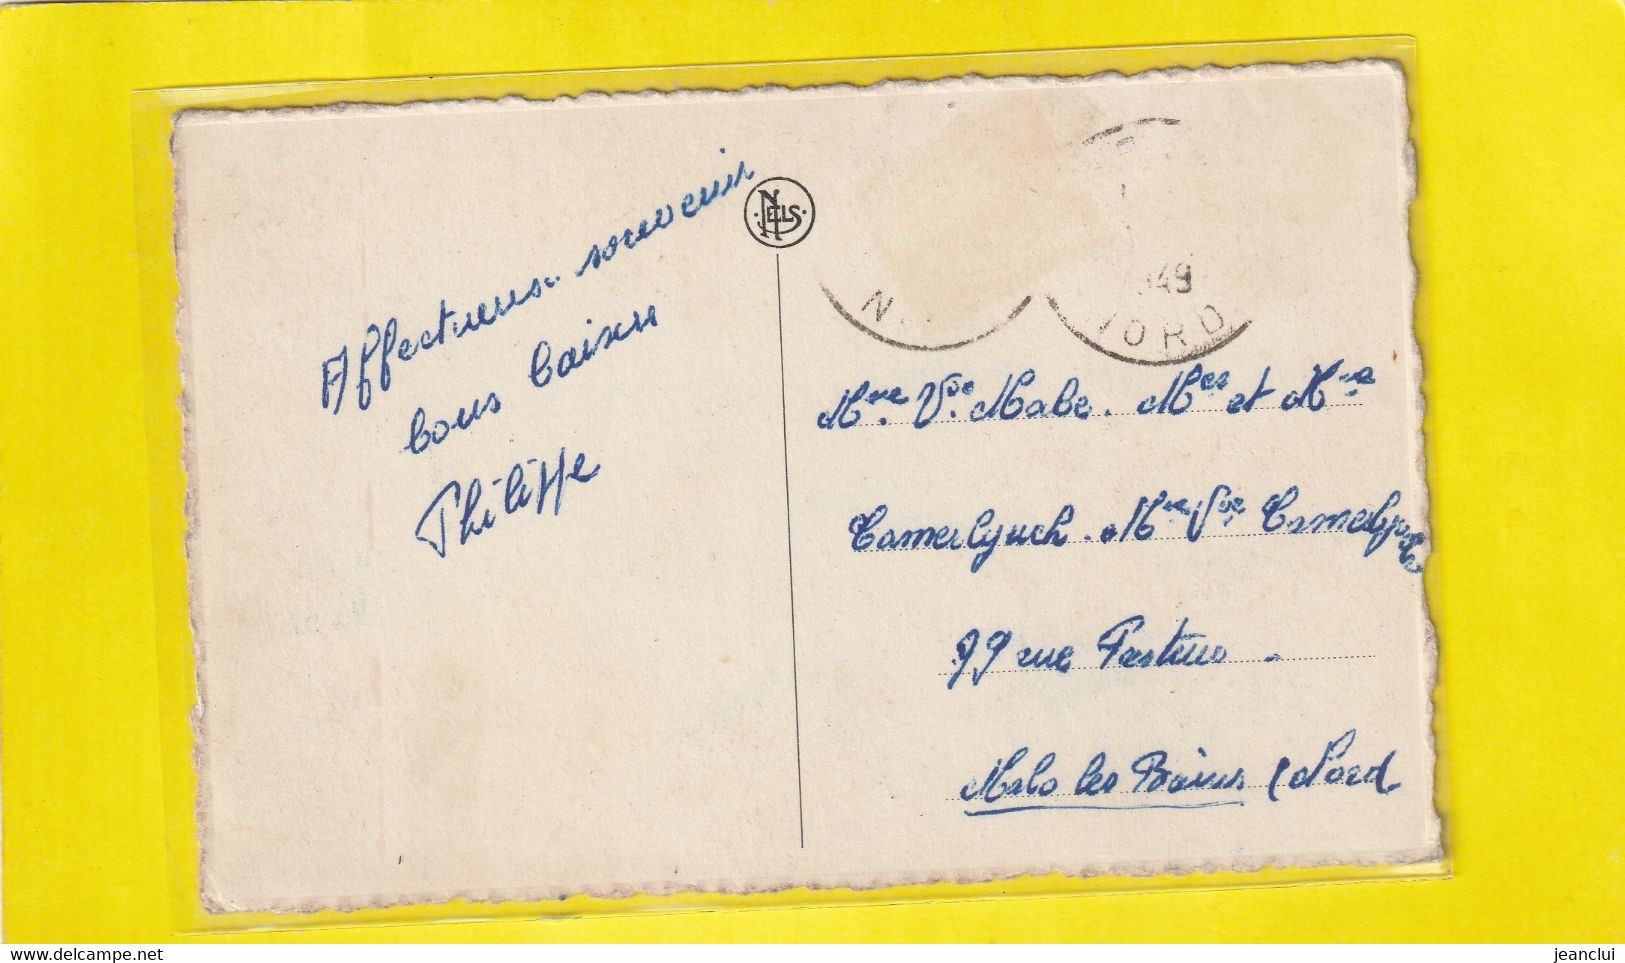 Affectueux souvenir
bons baisers
Philippe
NELS
1949
NORD
Mme Vve Malbe. Mes et Mme
Camerlynck. Mme Vve Camerlynck
99 rue Pasteur -
Malo les Bains (Nord
delcampe.net
jeanclui